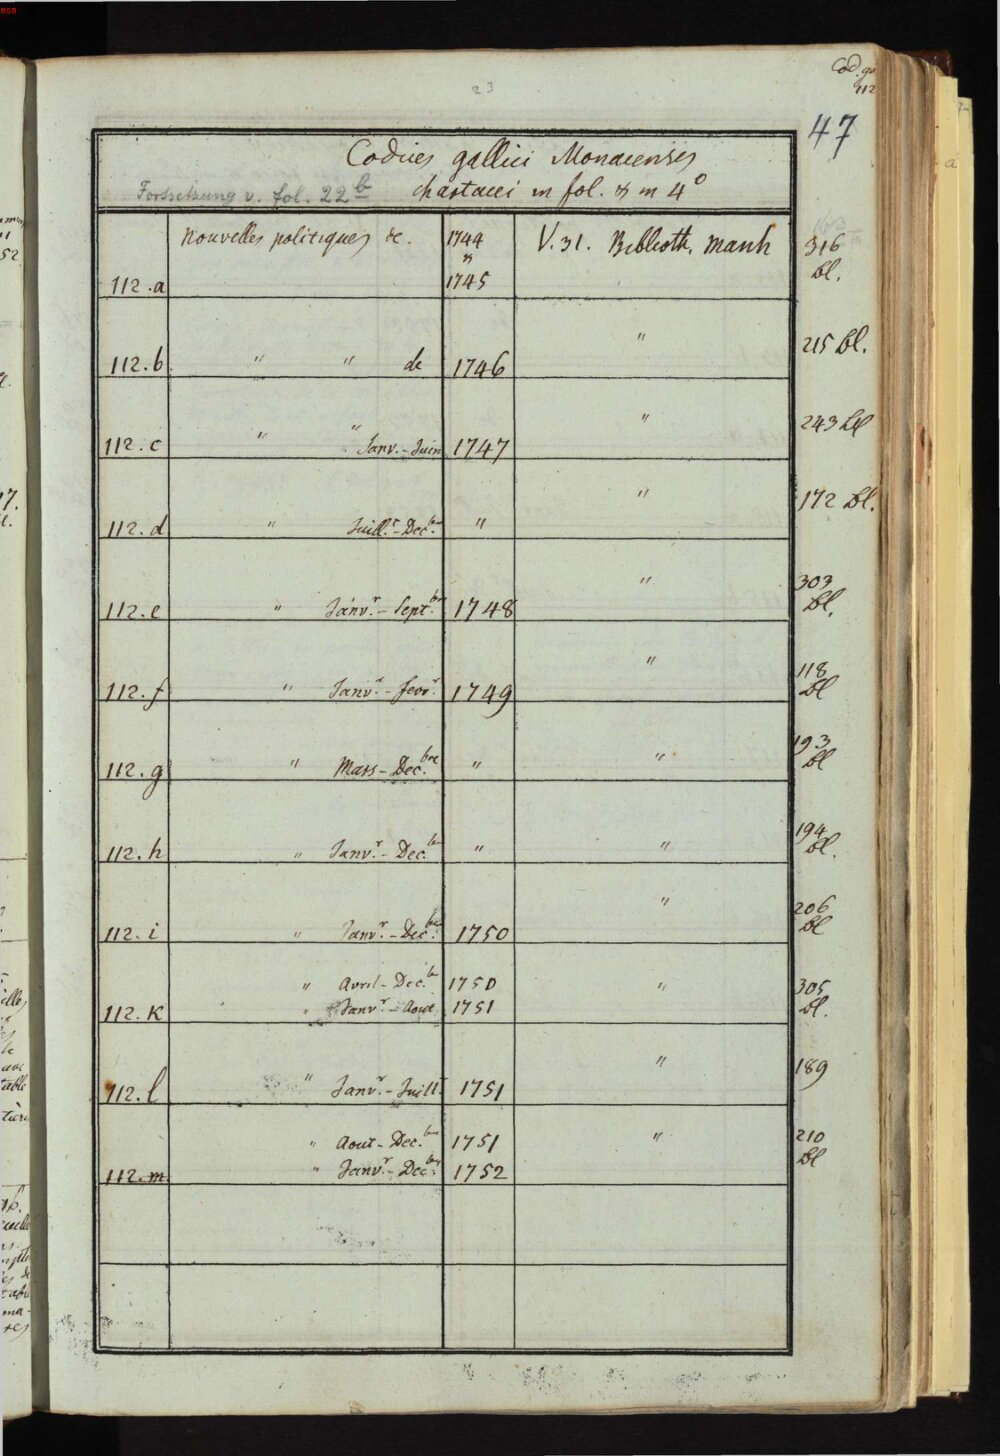 23
Cod. ga
112
47
Codices gallici Monacenses
Fortsetzung v. fol. 22 b chartacei in fol. & in 4°
112.a Nouvelles politiques de. 1744 & 1745 V. 31. Biblioth. Manh 316 bl.
112.b " " de 1746 " 215 bl.
112.c " " Janv. - Juin 1747 " 243 bl
112.d " Juill.r - Dec.bre " " 172 bl.
112.e " Janv.r - Sept.bre 1748 " 303 bl.
112.f " Janv.r - fevr.r 1749 " 118 bl
112.g " Mars - Dec.bre " " 193 bl
112.h " Janv.r - Dec.bre " " 194 bl.
112.i " Janv.r - Dec.bre 1750 " 206 bl
" Avril - Dec.bre 1750 " 305 bl.
112.k " Janv.r - Aout 1751
112.l " Janv.r - Juill.t 1751 " 189
" Aout - Dec.bre 1751 " 210 bl
112.m " Janv.r - Dec.bre 1752